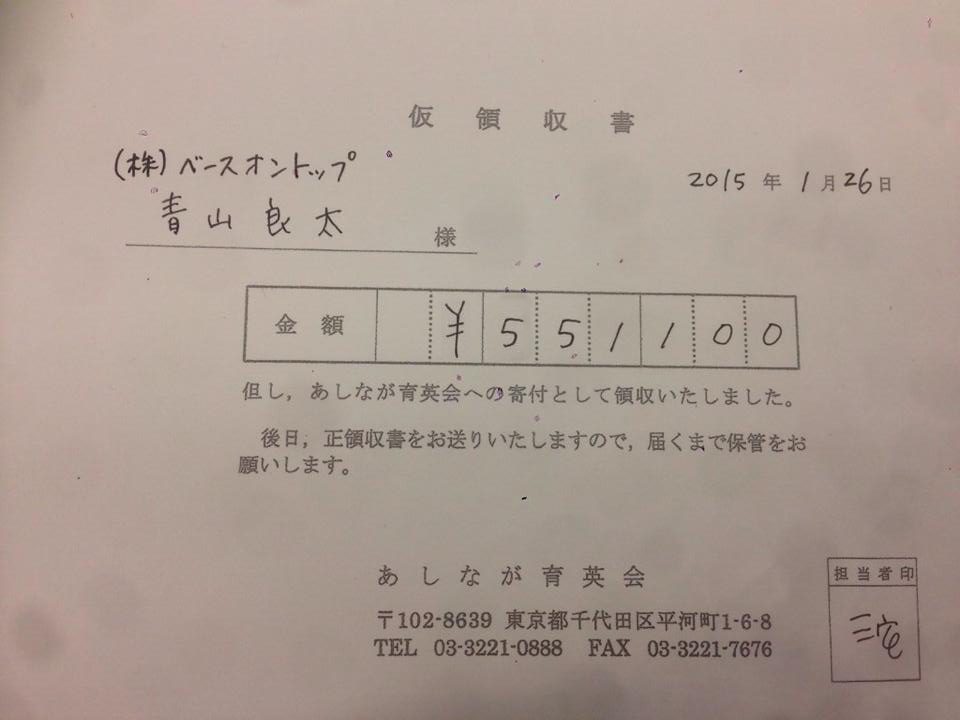 仮領収書
(株)ベースオントップ
2015年1月26日
青山良太 様
金額 ¥551100
但し，あしなが育英会への寄付として領収いたしました。
後日，正領収書をお送りいたしますので，届くまで保管をお
願いします。
あしなが育英会
担当者印
〒102-8639 東京都千代田区平河町1-6-8
三宅
TEL 03-3221-0888 FAX 03-3221-7676